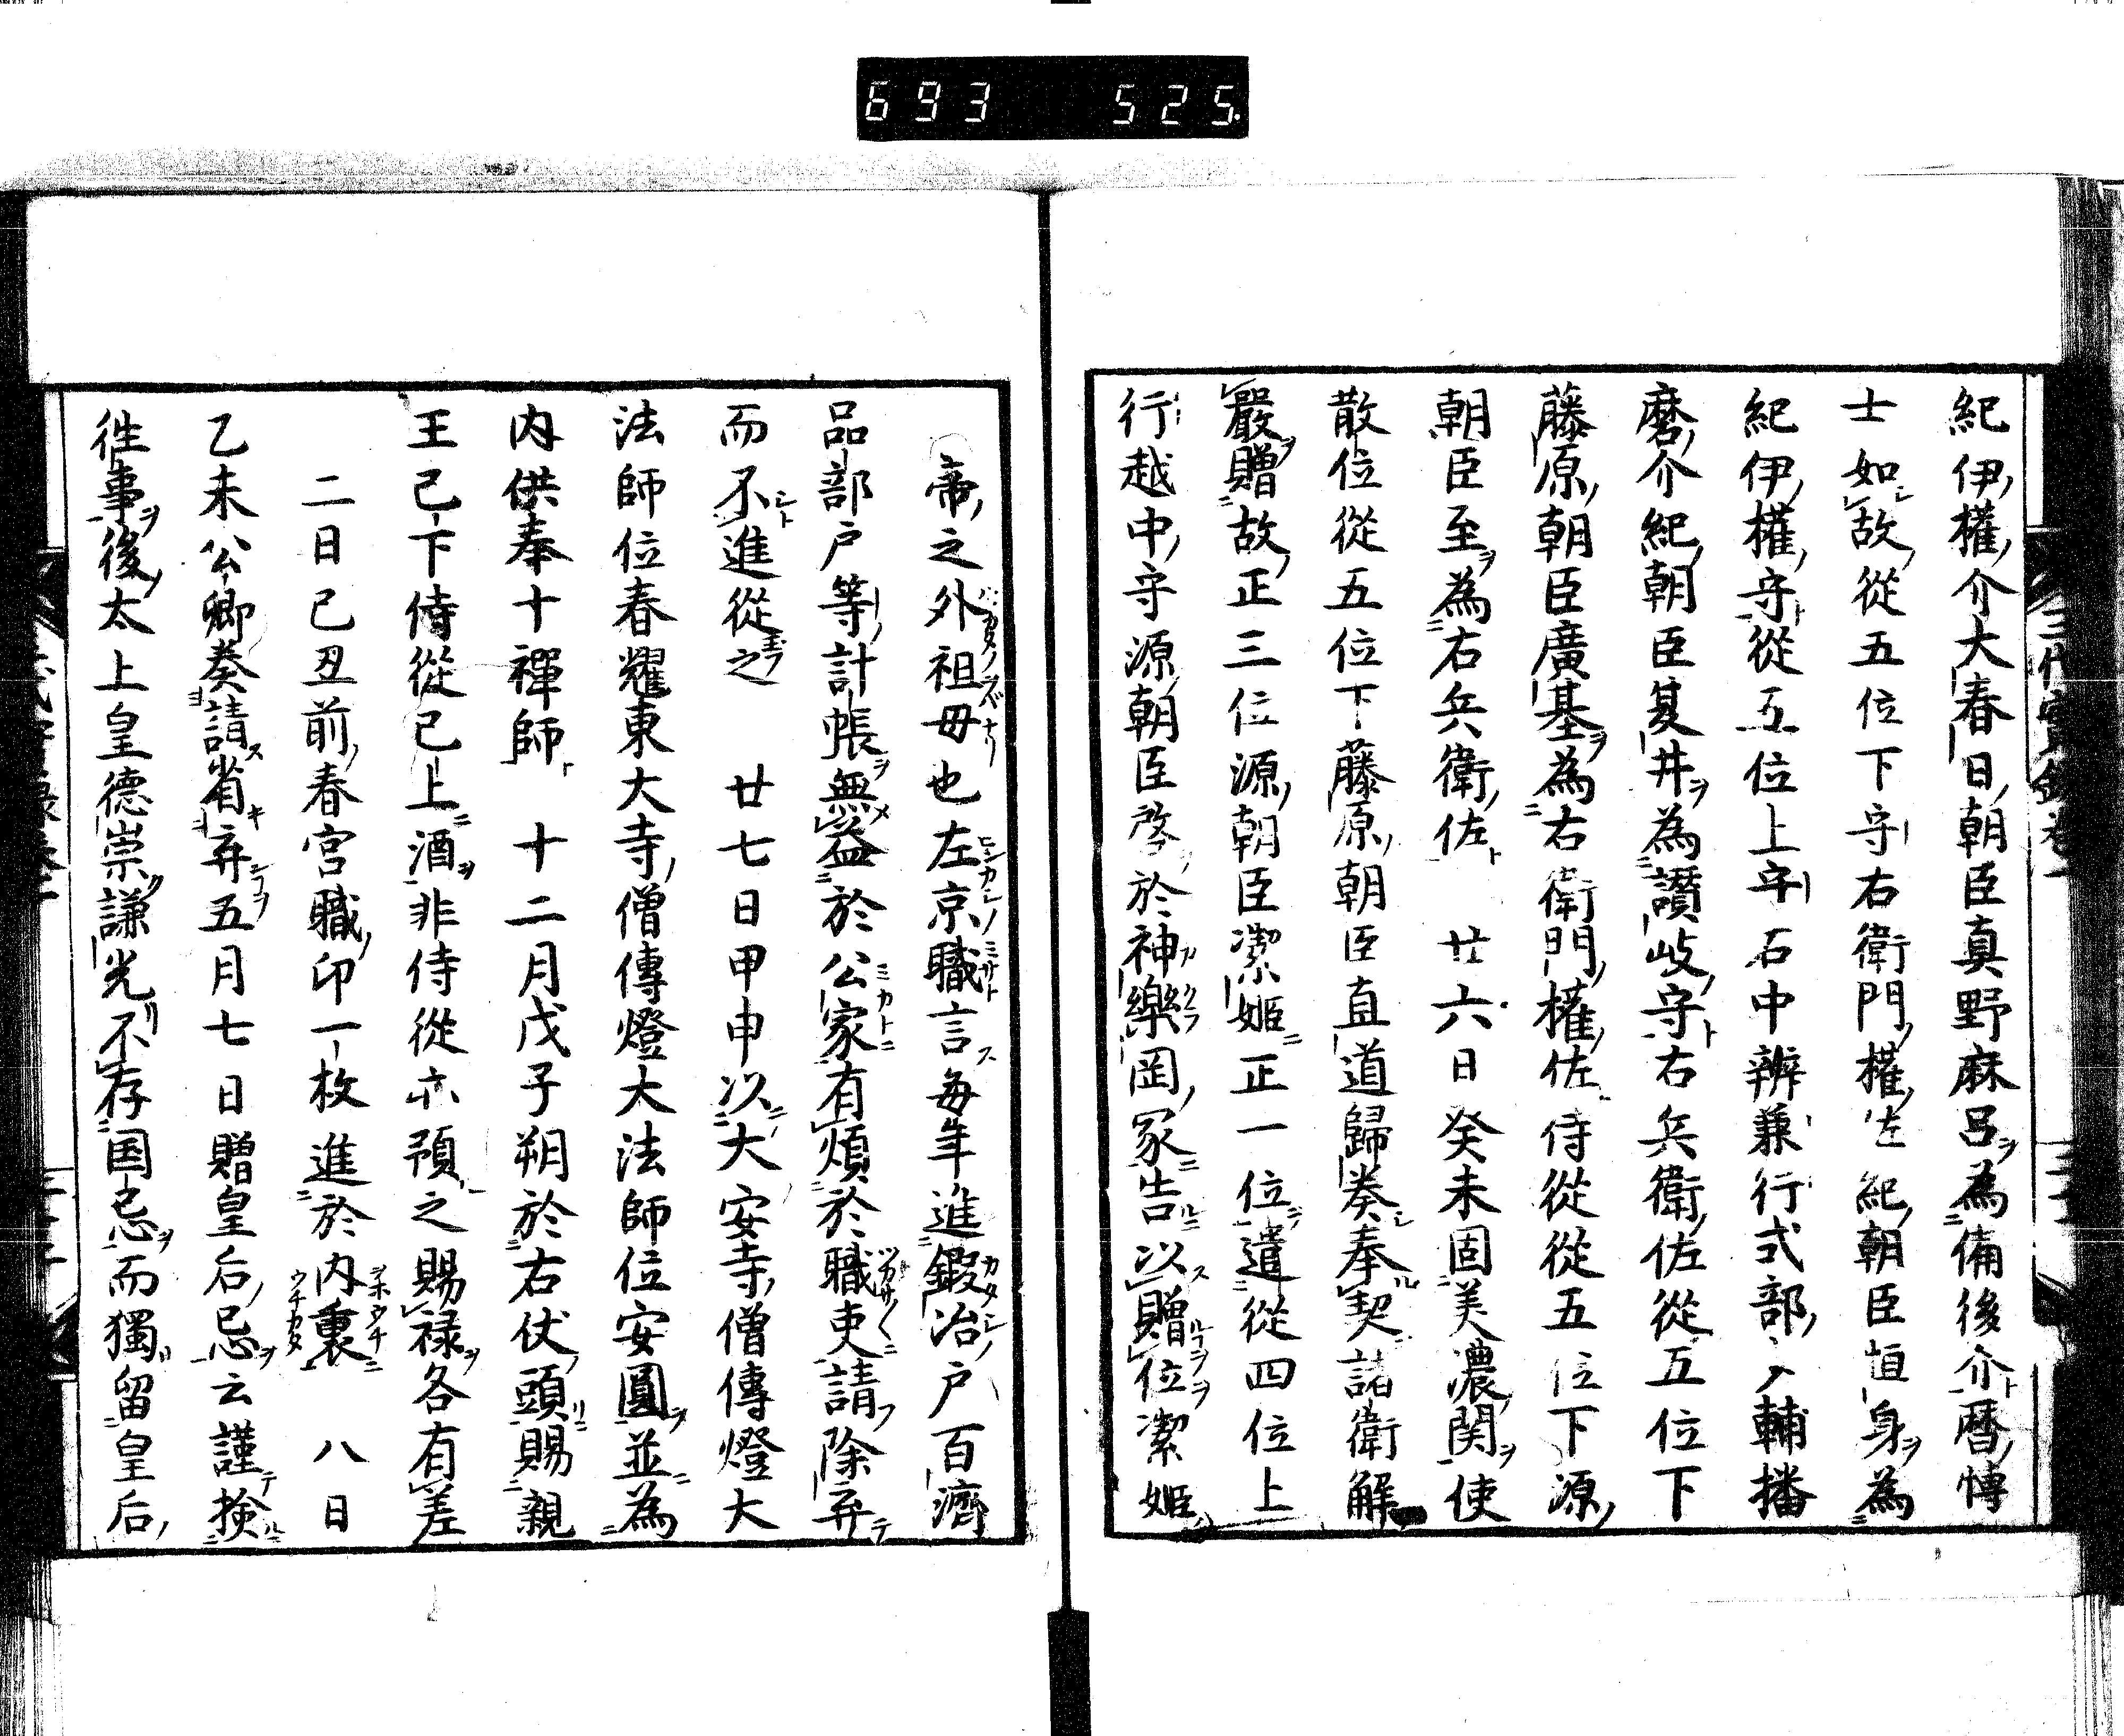 693 525.
紀伊權介大春日朝臣真野麻呂為備後介暦博
士如故從五位下守右衛門權佐紀朝臣恒身為
紀伊權守從五位上守右中辨兼行式部少輔播
磨介紀朝臣夏井為讃岐守右兵衛佐從五位下
藤原朝臣廣基為右衛門權佐侍從從五位下源
朝臣至為右兵衛佐 廿六日癸未固美濃関使
散位從五位下藤原朝臣直道歸奏奉契諸衛解
嚴贈故正三位源朝臣潔姬正一位遣從四位上
行越中守源朝臣啓於神樂岡冢告以贈位潔姬
帝之外祖毋也左京職言毎年進鍛冶户百濟
品部户等計帳無益於公家有煩於職吏請除弃
而不進從之 廿七日甲申以大安寺僧傳燈大
法師位春耀東大寺僧傳燈大法師位安圓並為
内供奉十禪師 十二月戊子朔於右伏頭賜親
王已下侍從已上酒非侍從亦預之賜禄各有差
二日己丑前春宮職印一枚進於内裏 八日
乙未公卿奏請省弃五月七日贈皇后忌云謹検
徃事後太上皇德崇謙光不存国忌而獨留皇后